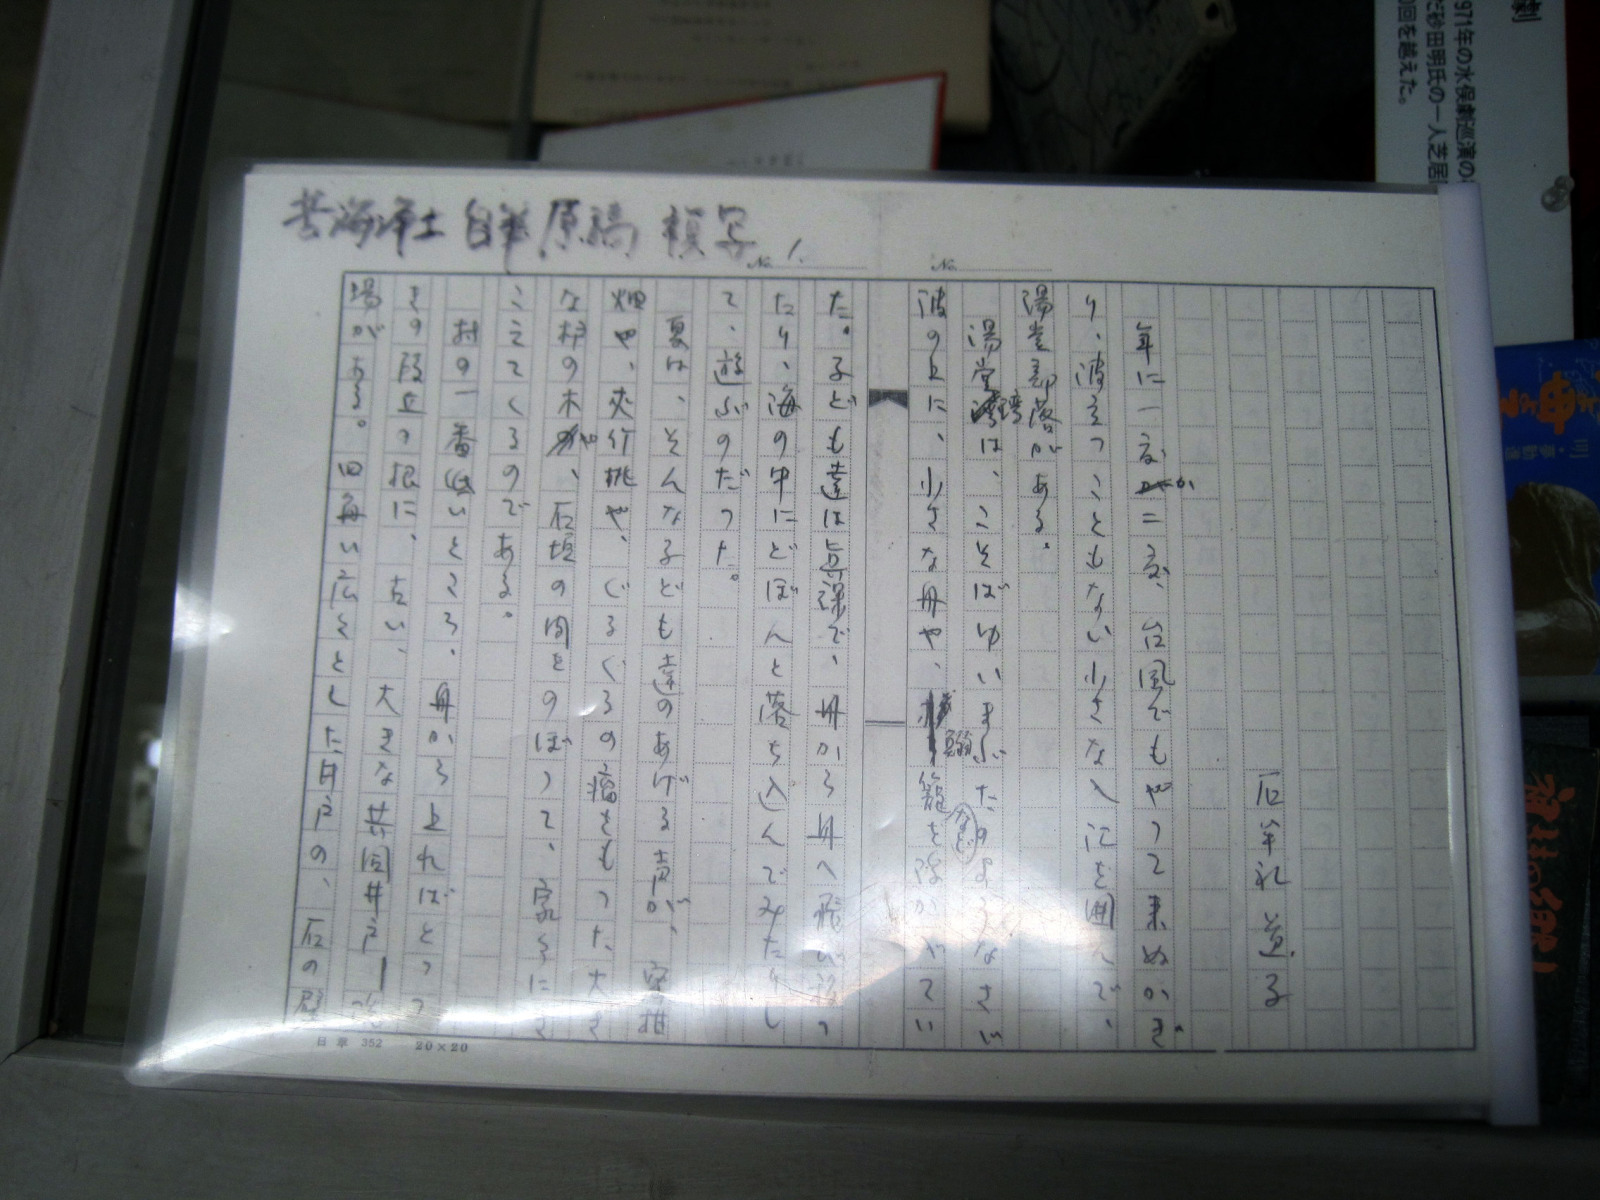 苦海浄土 自筆 原稿 複写
No. 1.
No.
石牟礼 道子
年に一度か二度、台風でもやって来ぬかぎ
り、波立つこともない小さな入江を囲んで、
湯堂部落がある。
湯堂湾は、こそばゆいまぶたのようなさざ
波の上に、小さな舟や、鰯籠などを浮かべてい
た。子ども達は真裸で、舟から舟へ飛び移っ
たり、海の中にどぼんと落ち込んでみたりし
て、遊ぶのだった。
夏は、そんな子ども達のあげる声が、蜜柑
畑や、夾竹桃や、ぐるぐるの瘤をもった大き
な柿の木や、石垣の間をのぼって、家々にき
こえてくるのである。
村の一番低いところ、舟から上ればとっつ
きの段丘の根に、古い、大きな共同井戸―洗
場がある。四角い広々とした井戸の、石の壁
日草 352 20×20
劇
971年の水俣劇巡演の
た砂田明氏の一人芝居
0回を越えた。